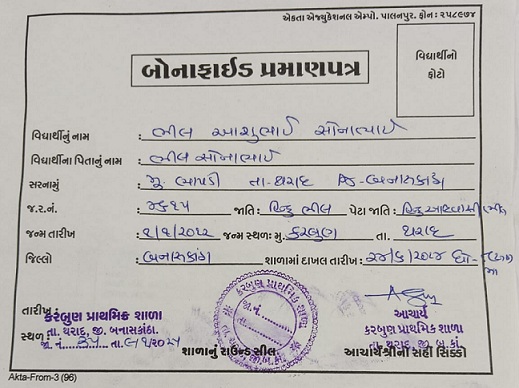 એકતા એજ્યુકેશનલ એમ્પો. પાલનપુર. ફોન : ૨૫૮૯૭૪
વિદ્યાર્થીનો
ફોટો
બોનાફાઇડ પ્રમાણપત્ર
વિદ્યાર્થીનું નામ : ભીલ આશુભાઈ સોનાભાઈ
વિદ્યાર્થીના પિતાનું નામ : ભીલ સોનાભાઈ
સરનામું : મુ. તા-થરાદ જિ-બનાસકાંઠા
જ.ર.નં. : જાતિ : હિન્દુ ભીલ પેટા જાતિ : હિન્દુ
જન્મ તારીખ : જન્મ સ્થળ: મુ. કરબુણ તા. થરાદ
જિલ્લો : બનાસકાંઠા શાળામાં દાખલ તારીખ :
તારીખ :
કરબુણ પ્રાથમિક શાળા
સ્થળ : તા. થરાદ, જી. બનાસકાંઠા.
જા. નં. તા.
કરબુણ પ્રાથમિક શાળા
જા. નં.
તા.
શાળાનું રાઉન્ડ સીલ
આચાર્ય
કરબુણ પ્રાથમિક શાળા
તા. થરાદ, જી. બ.કાં.
આચાર્યશ્રીની સહી સિક્કો
Akta-From-3 (96)